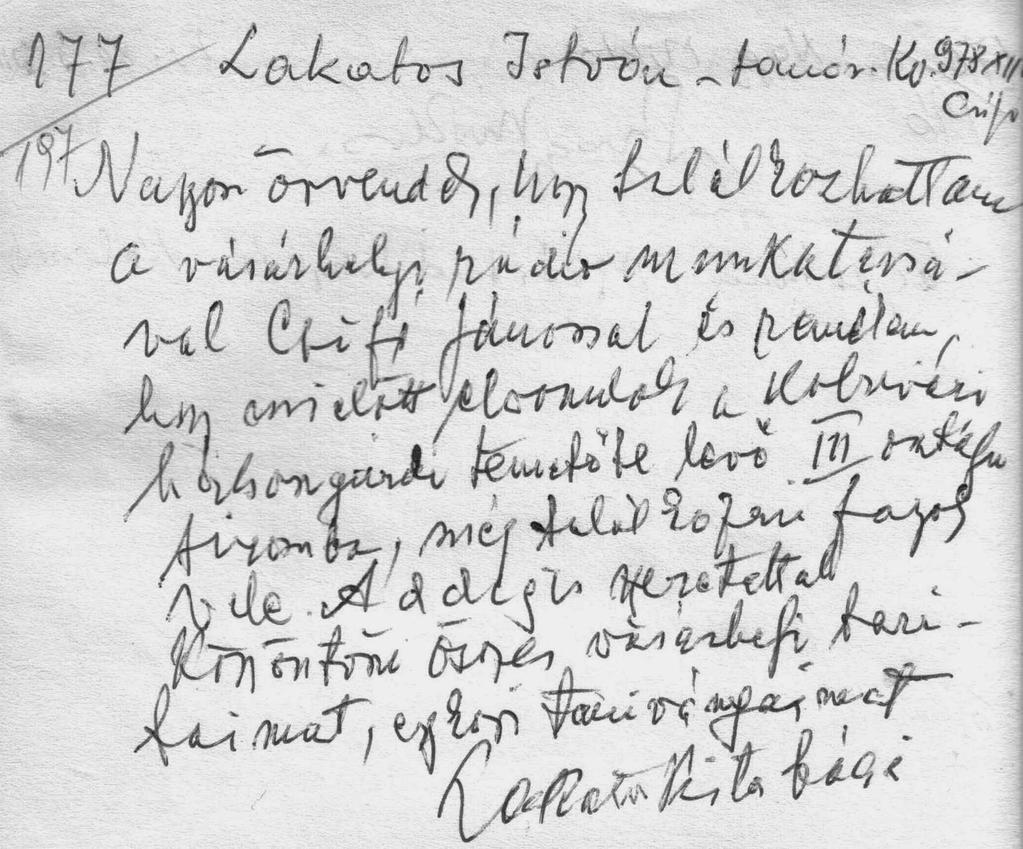 177 Lakatos István – tanár. Kv. 978 XII
Csifó
197 Nagyon örvendek, hogy találkozhattam
a vásárhelyi rádió munkatársá-
val Csifó Jánossal és remélem,
hogy mielőtt elvonulok a Kolozsvári
házsongárdi temetőbe levő III
, még találkozni fogok
vele. Addig is szeretettel
köszöntöm összes vásárhelyi bará-
taimat, egykori tanítványaimat
Lakatos Pista bácsi